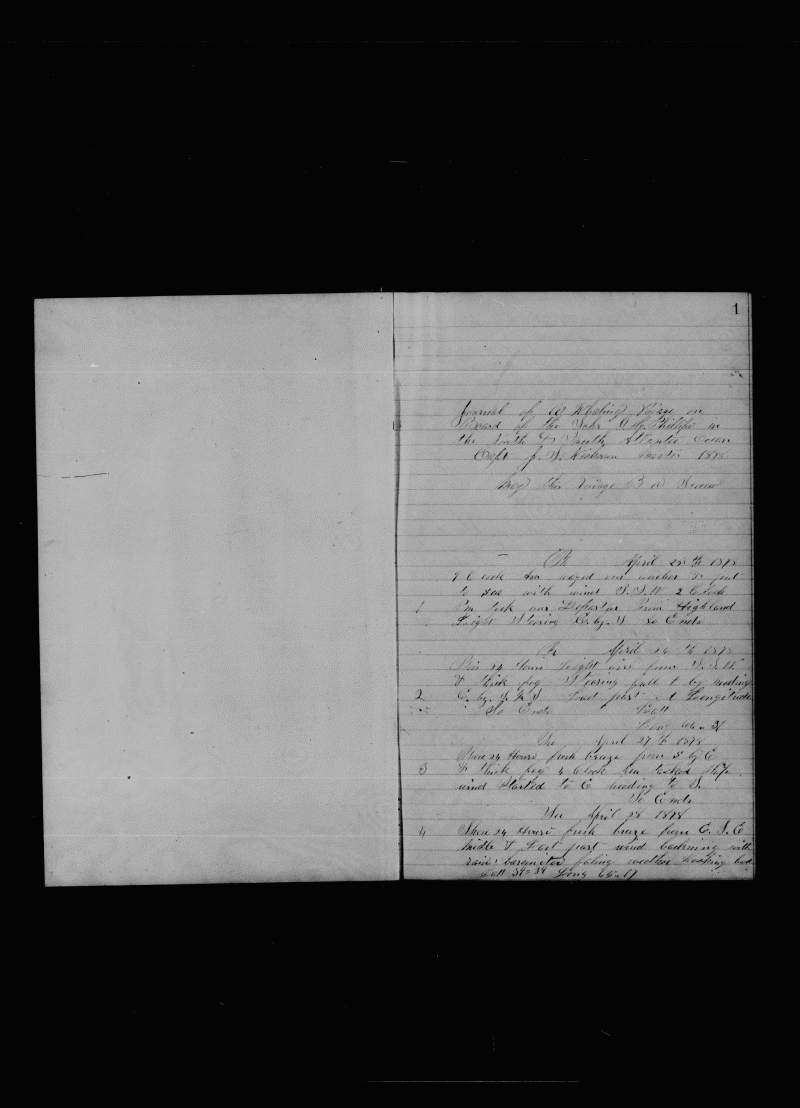 1
Journal of a Whaling Voiage on
Board of the Schr Philips in
the North & South Atlantic Ocean
Capt J. Master 1878
May this Voiage B a
April 25 th 1878
our anchor & put
to sea with wind S.S.W 2 Clock
1 Pm took our Departur From Highland
Light Stearing E. by. S So Ends
April 26 th 1878
Thes 24 Hours Light airs from S.S.W
& thick fog Stearing full & by heading
2 E. by. Last part Longitude
So Ends Latt
Long
April 27 th 1878
Thes 24 Hours fresh breze from S by E
3 & thick fog 4 Clock Pm tacked Ship
wind started to E heading to S.
So Ends
April 28 1878
4 Thes 24 Hours fresh breze from E. S. E
Midle & Last part wind backning with
rain barometer faling weather looking bad
Latt 39=39 Long